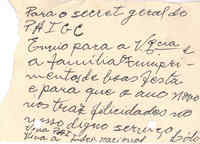 Para o secret geral do
PAIGC
Envio para a V
e
a familia cumpri-
mentos de boas festa
e para que o ano novo
nos traz felicidades no
nosso digno serviço
Viva a lider nacional